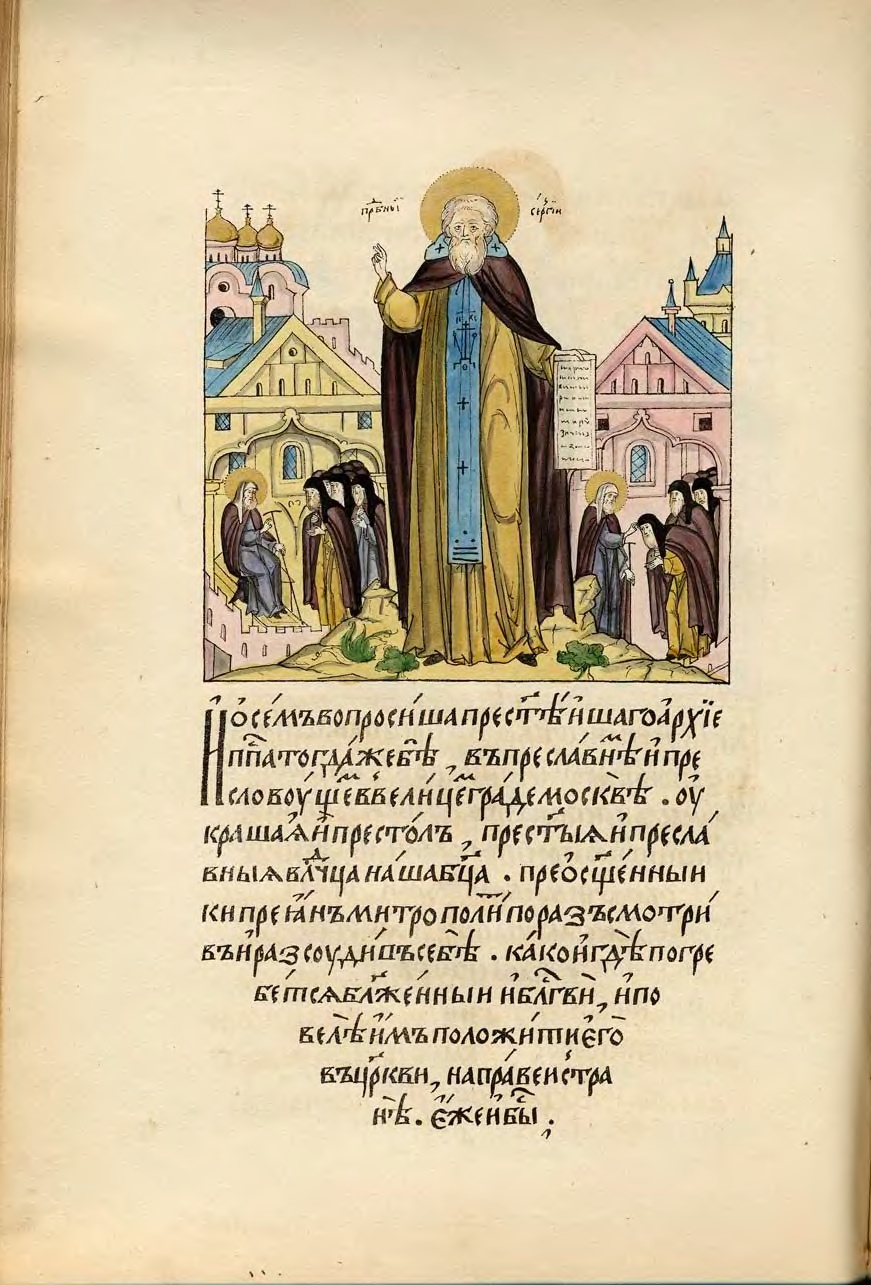 прпⷣбныⷾ
сергїи
И о се́мъ вопроси́ша прест҃ѣ́ишаго а҆рхїе
пⷭ҇па тогда́ же бѣ̀ , въ пресла́внѣⷨ и҆ пре
словоу́щеⷨ в вели́цеⷨ гра́де москвѣ̀ . оу҆
краша́ѧ и҆ престо́лъ , прест҃ы́ѧ и҆ пресла́
вныѧ влⷣчца на́ша бцⷣа . прео҆сщ҃е́нныи
кипреїа́нъ митропо́лиⷮ по разъсмотри́
въ и҆ разсоуди́въ себѣ̀ . ка́ко и҆ гдѣ̀ погре
бе́тсѧ блж҃е́нныи и҆ блг҃ове́нⷩ , и҆ по
велѣ̀ и҆́мъ положи́ти є҆го̀
въ цр҃кви , на пра́веи стра
нѣ̀ . є҆́же и҆ бы́сⷭ .